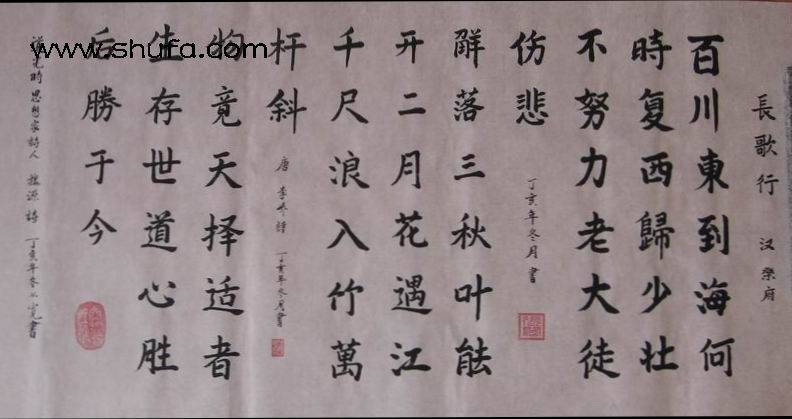 長歌行 汉樂府
百川東到海何
時复西歸少壮
不努力老大徒
伤悲
丁亥年冬月書
解落三秋叶能
开二月花遇江
千尺浪入竹萬
杆斜
唐 李峤詩 丁亥年冬月書
物竟天择适者
生存世道心胜
后勝于今
光時思想家詩人 源詩 丁亥年冬 書
www.shufa.com